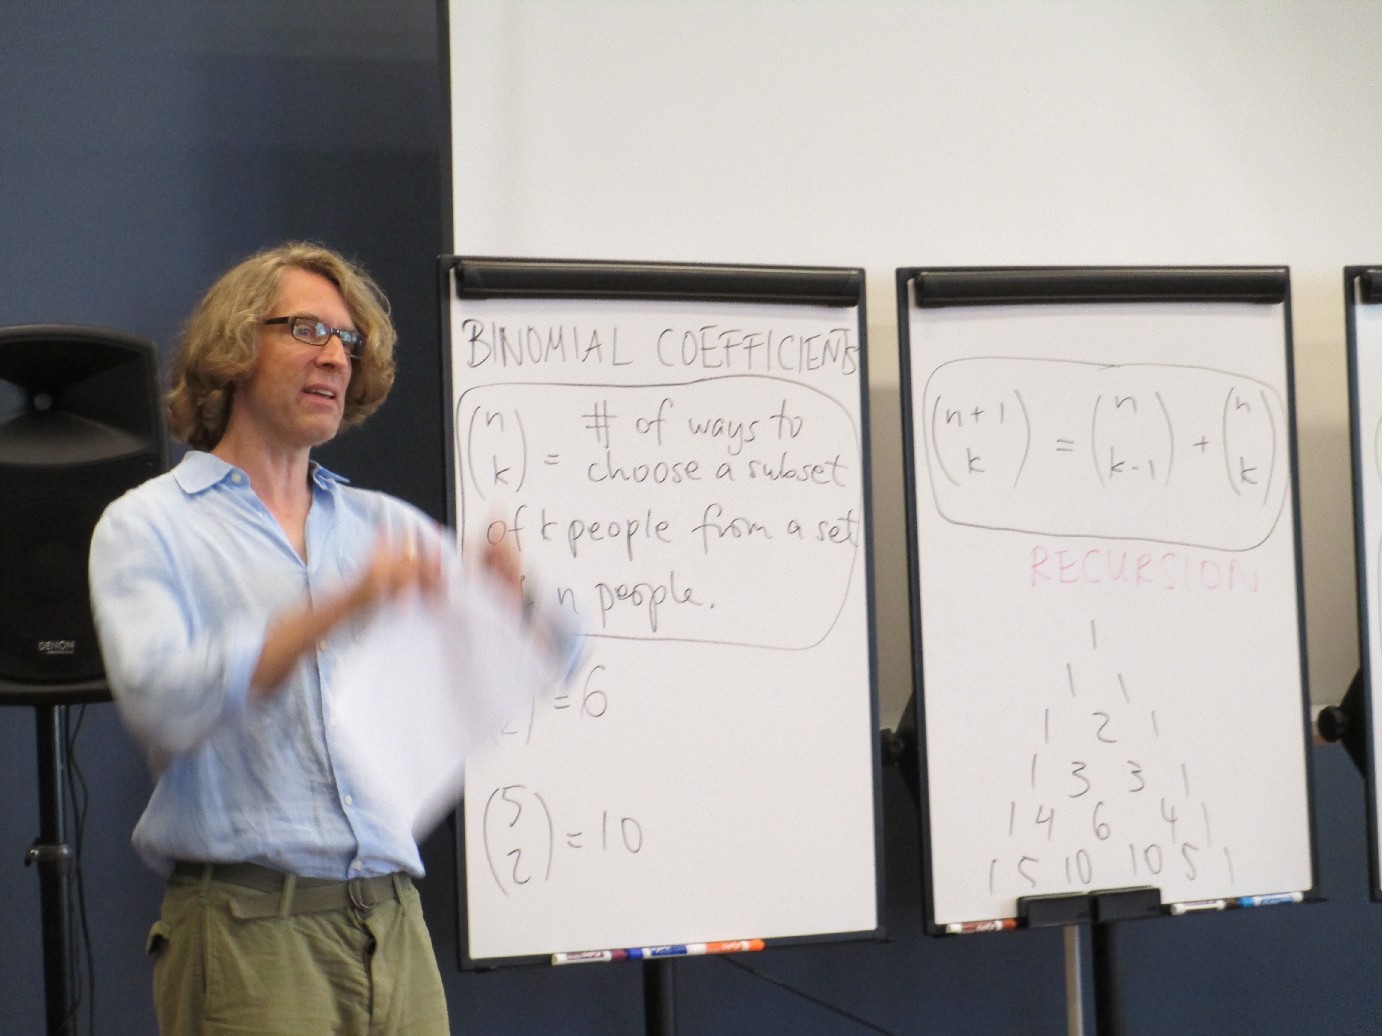 DENON
BINOMIAL COEFFICIENTS
(n k) = # of ways to
choose a subset
of k people from a set
n people.
= 6
(5 2) = 10
(n+1 k) = (n k-1) + (n k)
RECURSION
1
1 1
1 2 1
1 3 3 1
1 4 6 4 1
1 5 10 10 5 1